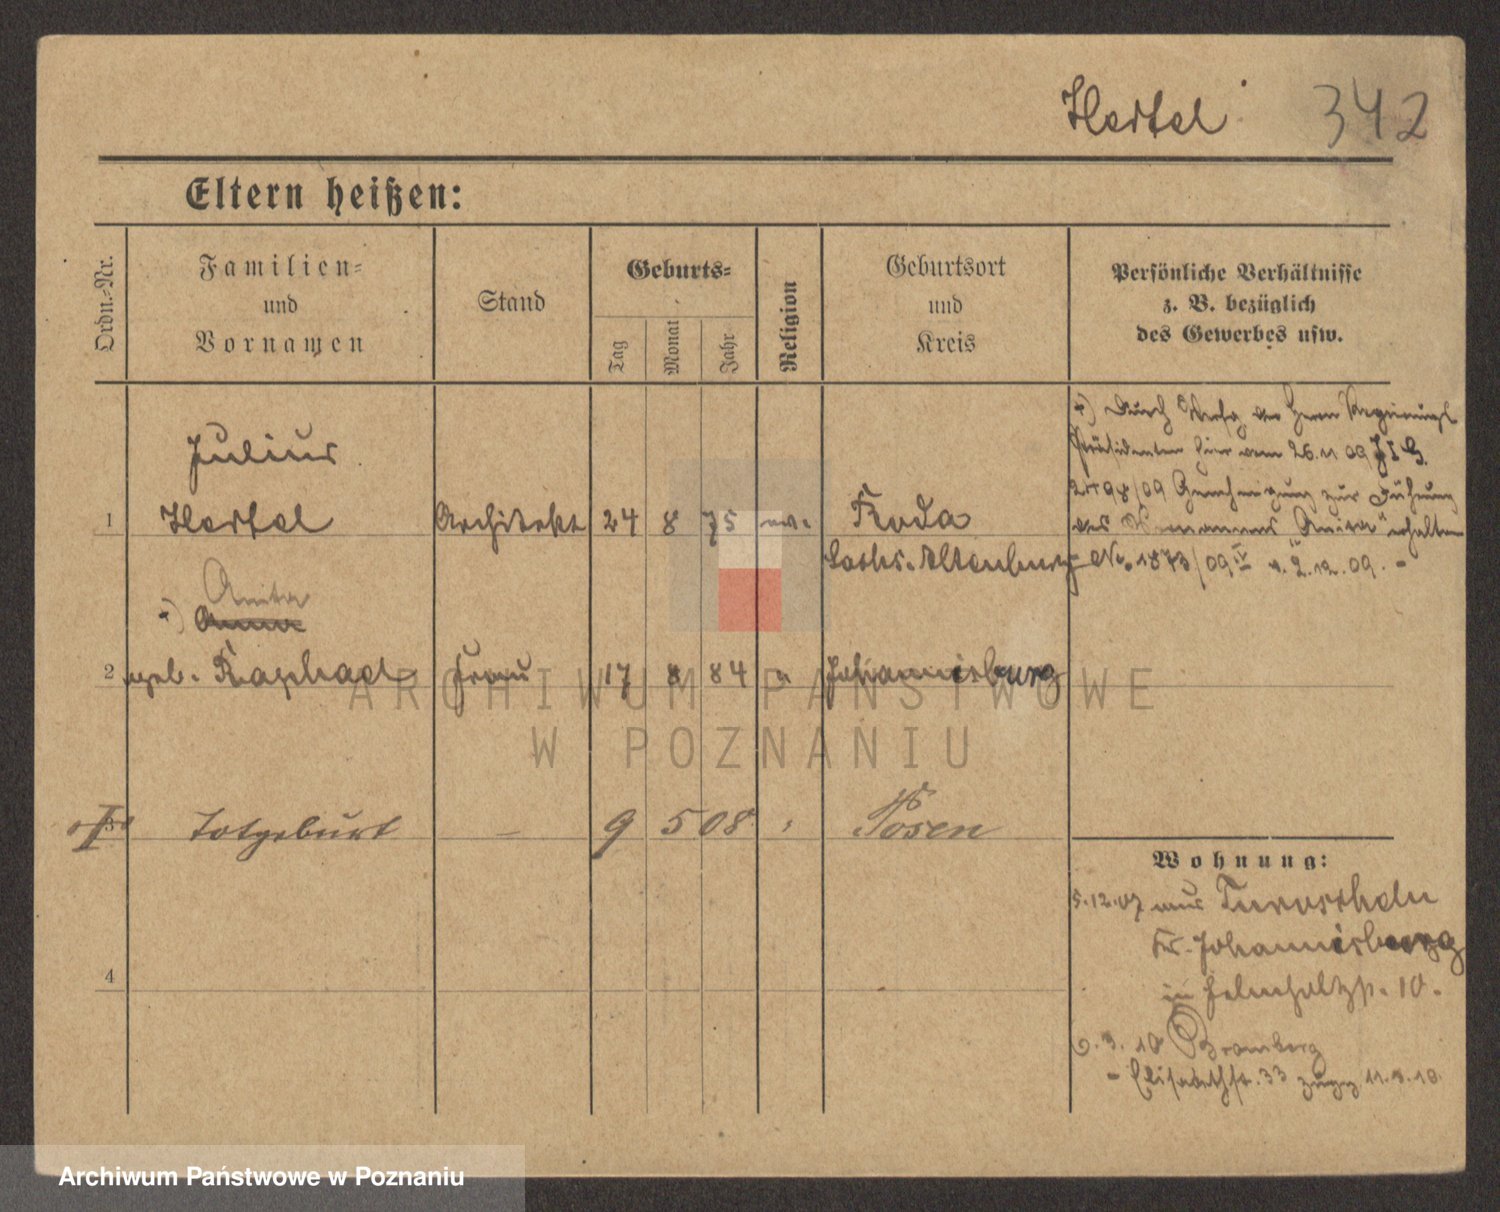 Hertel 342
Eltern heißen:
Ordn.-Nr.
Familien-
und
Vornamen
Stand
Geburts-
Tag
Monat
Jahr
Religion
Geburtsort
und
Kreis
Persönliche Verhältnisse
z. B. bezüglich
des Gewerbes usw.
Julius
1 Hertel Architekt 24 8 75 ev. Roda
Sachs. Altenburg
×) Durch Verfg des Herrn Regierungs
Präsidenten hier vom 26.11 09 J I G.
/09 Genehmigung zur Führung
des Vornamens "Anita" erhalten
No. 1873/09 IV v. 2.12.09. -
Anita
×) Anna
2 geb. Raphael Frau 17 8 84 " Johannisburg
3 Totgeburt - 9 5 08 " Posen
4
Wohnung:
5.12.07 aus
Kr. Johannisburg
in Helmholtzstr. 10.
6.3.10 Bromberg
- Elisabethstr. 33 zugez 11.3.10.
ARCHIWUM PAŃSTWOWE
W POZNANIU
Archiwum Państwowe w Poznaniu